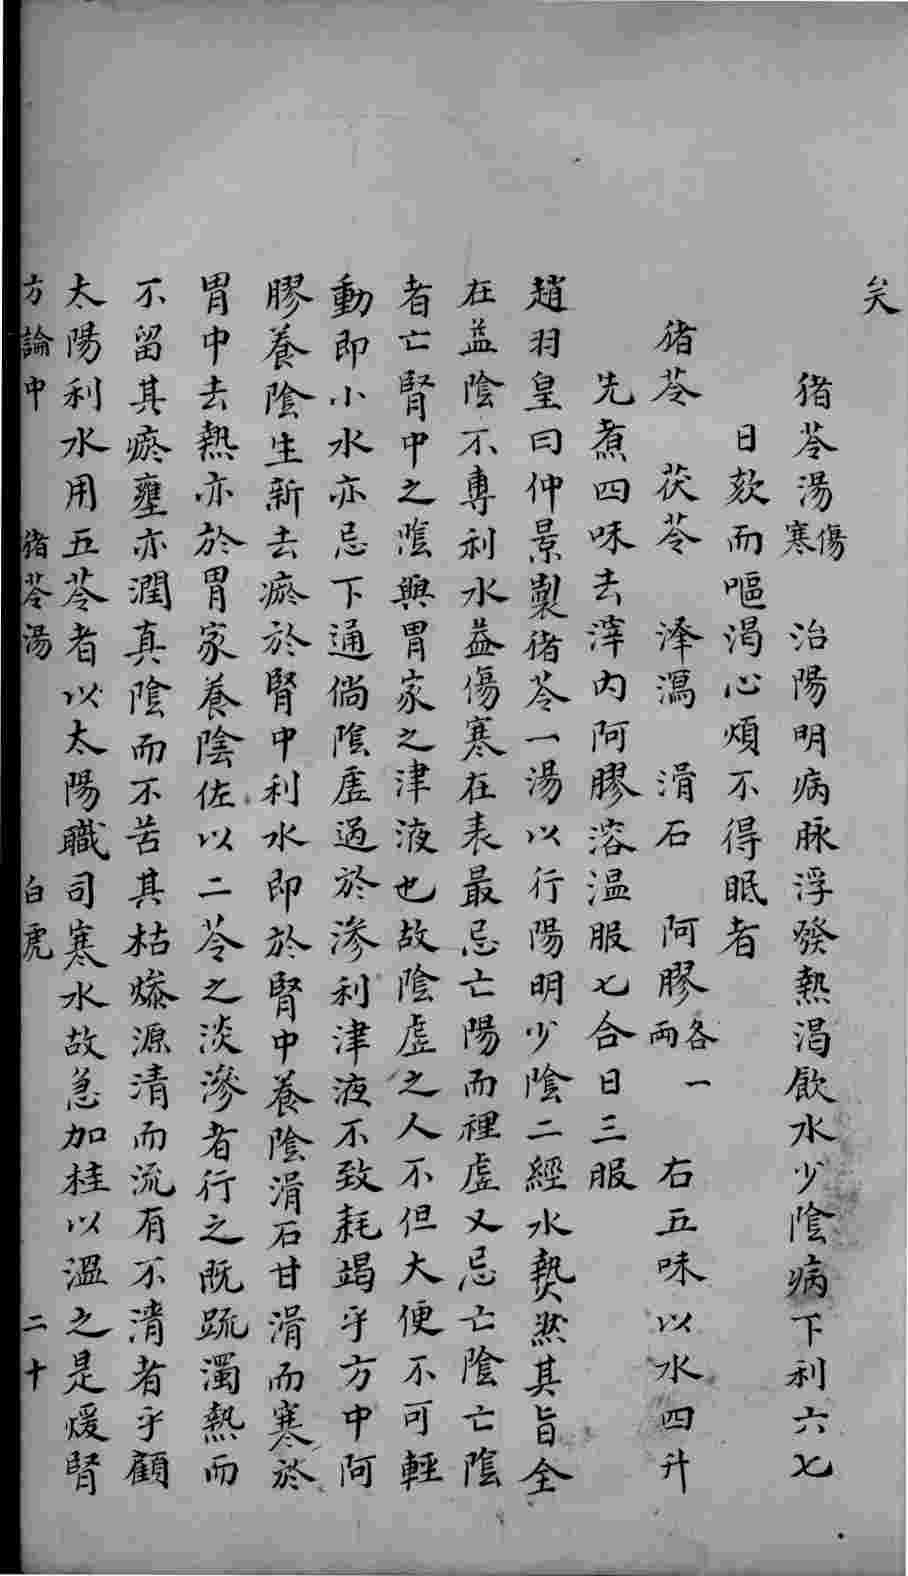 矣
猪苓湯傷寒 治陽明病脉浮發熱渴飲水少陰病下利六七
日欬而嘔渴心煩不得眠者
猪苓 茯苓 泽瀉 滑石 阿膠各一兩 右五味以水四升
先煮四味去滓内阿膠溶温服七合日三服
趙羽皇曰仲景製猪苓一湯以行陽明少陰二經水熱然其旨全
在益陰不專利水益傷寒在表最忌亡陽而裡虛又忌亡陰亡陰
者亡腎中之陰與胃家之津液也故陰虛之人不但大便不可輕
動即小水亦忌下通倘陰虛過於滲利津液不致耗竭乎方中阿
膠養陰生新去瘀於腎中利水即於腎中養陰滑石甘滑而寒於
胃中去熱亦於胃家養陰佐以二苓之淡滲者行之既疏濁熱而
不留其瘀壅亦潤真陰而不苦其枯燥源清而流有不清者乎顧
太陽利水用五苓者以太陽職司寒水故急加桂以溫之是煖腎
方論中 猪苓湯 白虎 二十